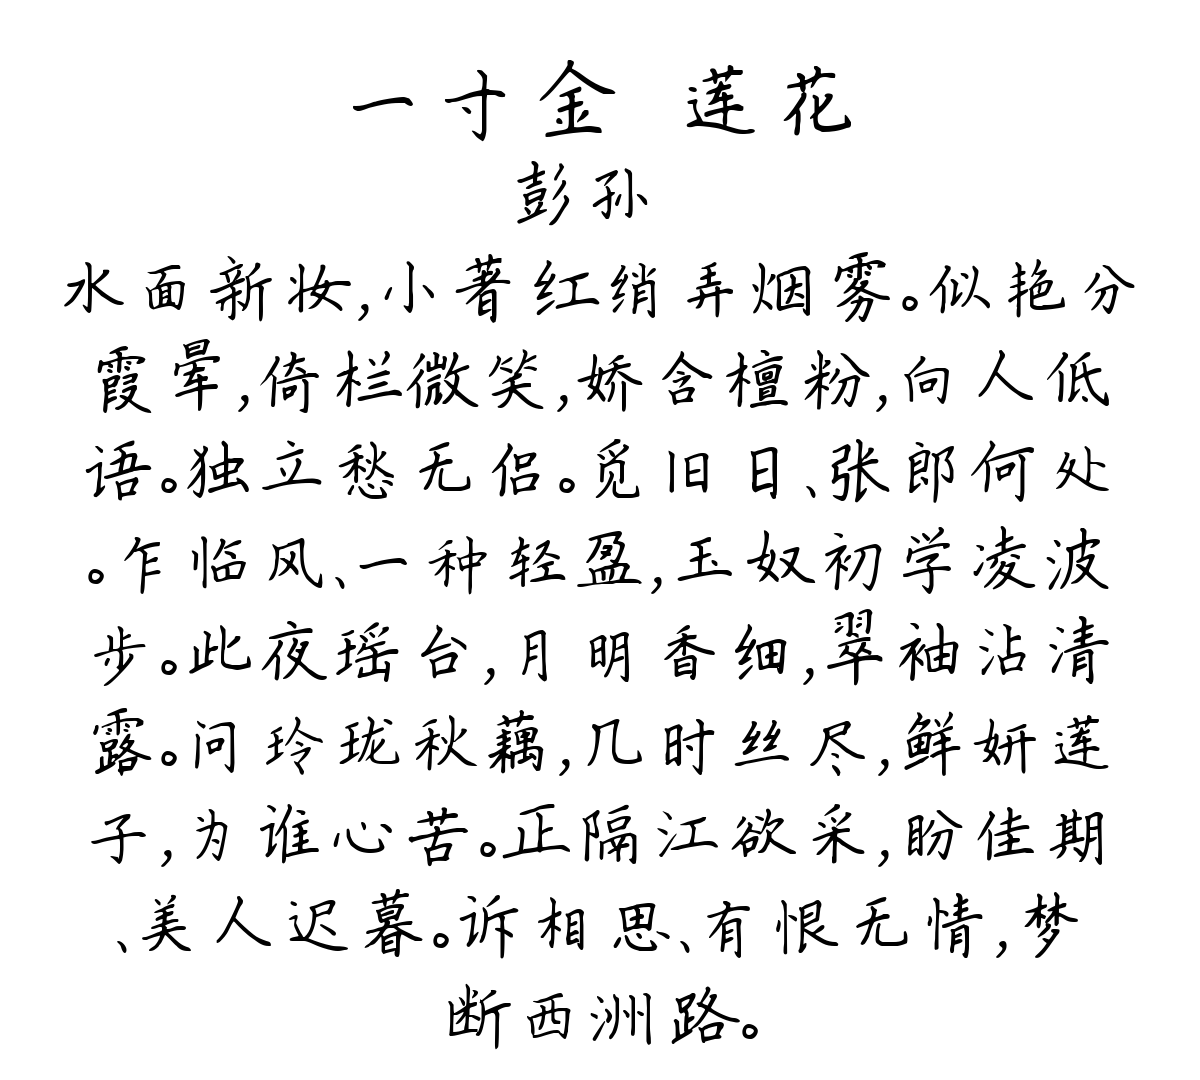 一寸金 莲花
彭孙
水面新妆,小著红绡弄烟雾。似艳分
霞晕,倚栏微笑,娇含檀粉,向人低
语。独立愁无侣。觅旧日、张郎何处
。乍临风、一种轻盈,玉奴初学凌波
步。此夜瑶台,月明香细,翠袖沾清
露。问玲珑秋藕,几时丝尽,鲜妍莲
子,为谁心苦。正隔江欲采,盼佳期
、美人迟暮。诉相思、有恨无情,梦
断西洲路。